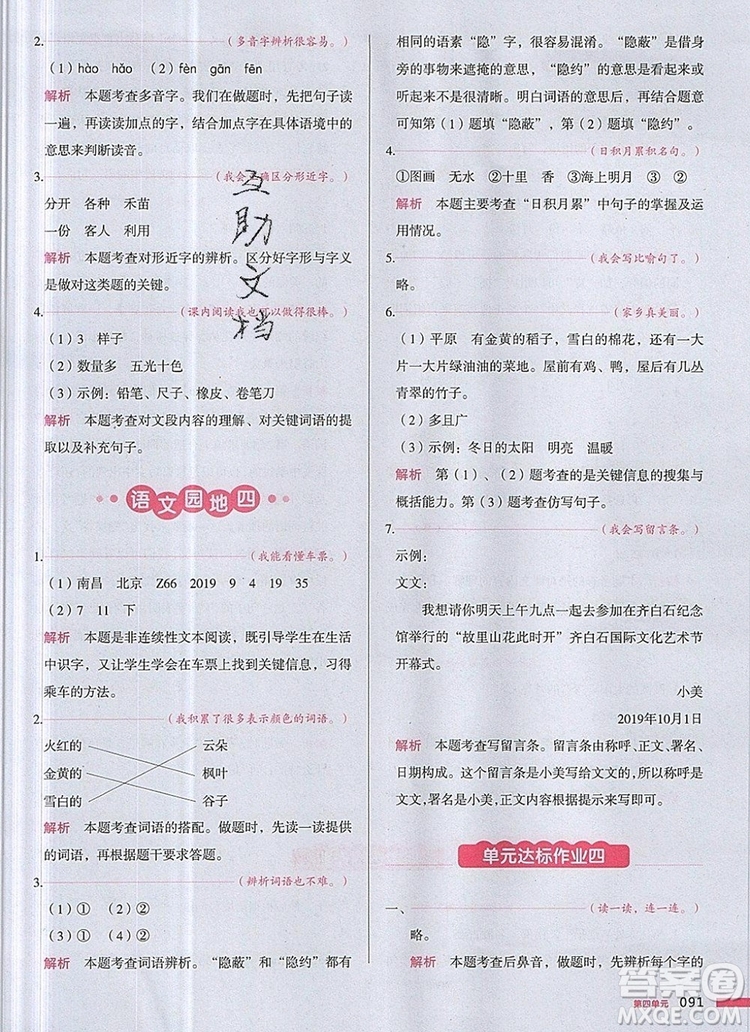 2.（多音字辨析很容易。）
（1）hào hǎo （2）fèn gān fēn
解析 本题考查多音字。我们在做题时，先把句子读
一遍，再读读加点的字，结合加点字在具体语境中的
意思来判断读音。
3.（我会正确区分形近字。）
分开 各种 禾苗
一份 客人 利用
解析 本题考查对形近字的辨析。区分好字形与字义
是做对这类题的关键。
4.（课内阅读我也可以做得很棒。）
（1）3 样子
（2）数量多 五光十色
（3）示例：铅笔、尺子、橡皮、卷笔刀
解析 本题考查对文段内容的理解、对关键词语的提
取以及补充句子。
语文园地四
1.（我能看懂车票。）
（1）南昌 北京 Z66 2019 9 4 19 35
（2）7 11 下
解析 本题是非连续性文本阅读，既引导学生在生活
中识字，又让学生学会在车票上找到关键信息，习得
乘车的方法。
2.（我积累了很多表示颜色的词语。）
火红的 云朵
金黄的 枫叶
雪白的 谷子
解析 本题考查词语的搭配。做题时，先读一读提供
的词语，再按照题干要求答题。
3.（辨析词语也不难。）
（1）① （2）②
（3）① （4）②
解析 本题考查词语辨析。“隐蔽”和“隐约”都有
相同的语素“隐”字，但意思差别很大。“隐蔽”是借身
旁的事物来遮掩的意思，“隐约”的意思是指看起来
或听起来不是很清晰。明白词语的意思后，再根据语
境判断第（1）题填“隐蔽”，第（2）题填“隐约”。
4.（日积月累积名句。）
①图画 无水 ②十里 香 ③海上明月 ③ ②
解析 本题主要考查“日积月累”中句子的掌握及运
用情况。
5.（我会写比喻句了。）
略。
6.（家乡真美丽。）
（1）平原 有金黄的稻子，雪白的棉花，还有一大
片一大片绿油油的菜地。屋前有鸡、鸭，屋后有几丛
青翠的竹子。
（2）多且广
（3）示例：冬日的太阳 明亮 温暖
解析 第（1）、（2）题考查的是关键信息的搜集与
与概括能力。第（3）题考查仿写句子。
7.（我会写留言条。）
示例：
文文：
我想请你明天上午九点一起去参加在齐白石纪念
馆举行的“故里山花此时开”齐白石国际文化艺术节
开幕式。
小美
2019年10月1日
解析 本题考查写留言条。留言条由称呼、正文、署名、
日期构成。这个留言条是小美写给文文的，所以称呼是
文文，署名是小美，正文的内容根据提示来写即可。
单元达标作业四
一、（读一读，连一连。）
略。
解析 本题考查后鼻音，做题时，先辨析每个字的
第四单元 091
互助文档
答案圈
MXQE.COM